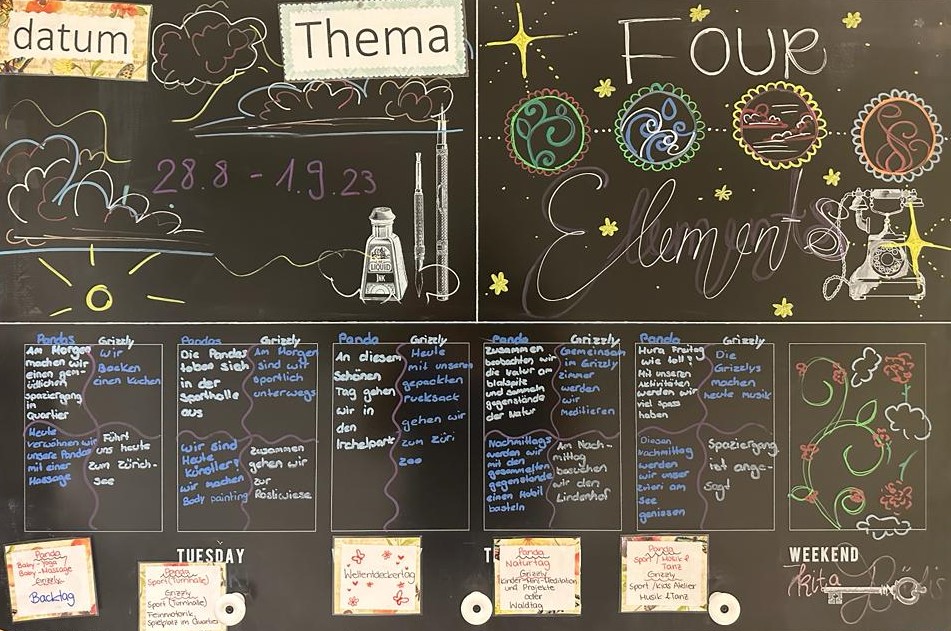 datum
Thema
28.8 - 1.9.23
LIQUID
INK
Four
Elements
Pandas
Am Morgen
machen wir
einen gem-
ütlichen
spaziergang
in
Quartier
Heute
verwöhnen wir
unsere Pandas
mit einer
Massage
Grizzly
Wir
Backen
einen Kuchen
Führt
uns heute
zum Zürich-
see
Pandas
Die Pandas
toben sich
in der
Sporthalle
aus
Wir sind
Heute
künstler!
wir machen
Body painting
Grizzly
Am Morgen
sind wir
sportlich
unterwegs
zusammen
gehen wir
zur
Rösliwiese
Panda
An diesem
Schönen
Tag gehen
wir in
den
Irchelpark
Grizzly
Heute
mit unserem
gepackten
rucksack
gehen wir
zum Züri
zoo
Panda
zusammen
beobachten wir
die Natur am
und sammeln
gegenstände
der Natur
Nachmittags
werden wir
mit den
gesammelten
gegenstände
einen Mobil
basteln
Grizzly
Gemeinsam
im Grizzly
zimmer
werden
wir
Meditieren
Am Nach-
mittag
besuchen
wir den
Lindenhof
Panda
Hura Freitag
wie toll!
Mit unseren
Aktivitäten
werden wir
viel spass
haben
Diesen
Nachmittag
werden
wir unser
Zvieri am
See
geniessen
Grizzly
Die
Grizzlys
machen
heute musik
Spaziergang
ist ange-
sagt
Panda
Baby-Yoga
Baby-Massage
Grizzly
Backtag
TUESDAY
Panda
Sport (Turnhalle)
Grizzly
Sport (Turnhalle)
Feinmotorik,
Spielplatz im Quartier
Weltentdeckertag
T
Panda
Naturtag
Grizzly
und Projekte
oder
Waldtag
Panda
Sport / Musik &
Tanz
Grizzly
Sport / Kids Atelier
Musik & Tanz
WEEKEND
Kita